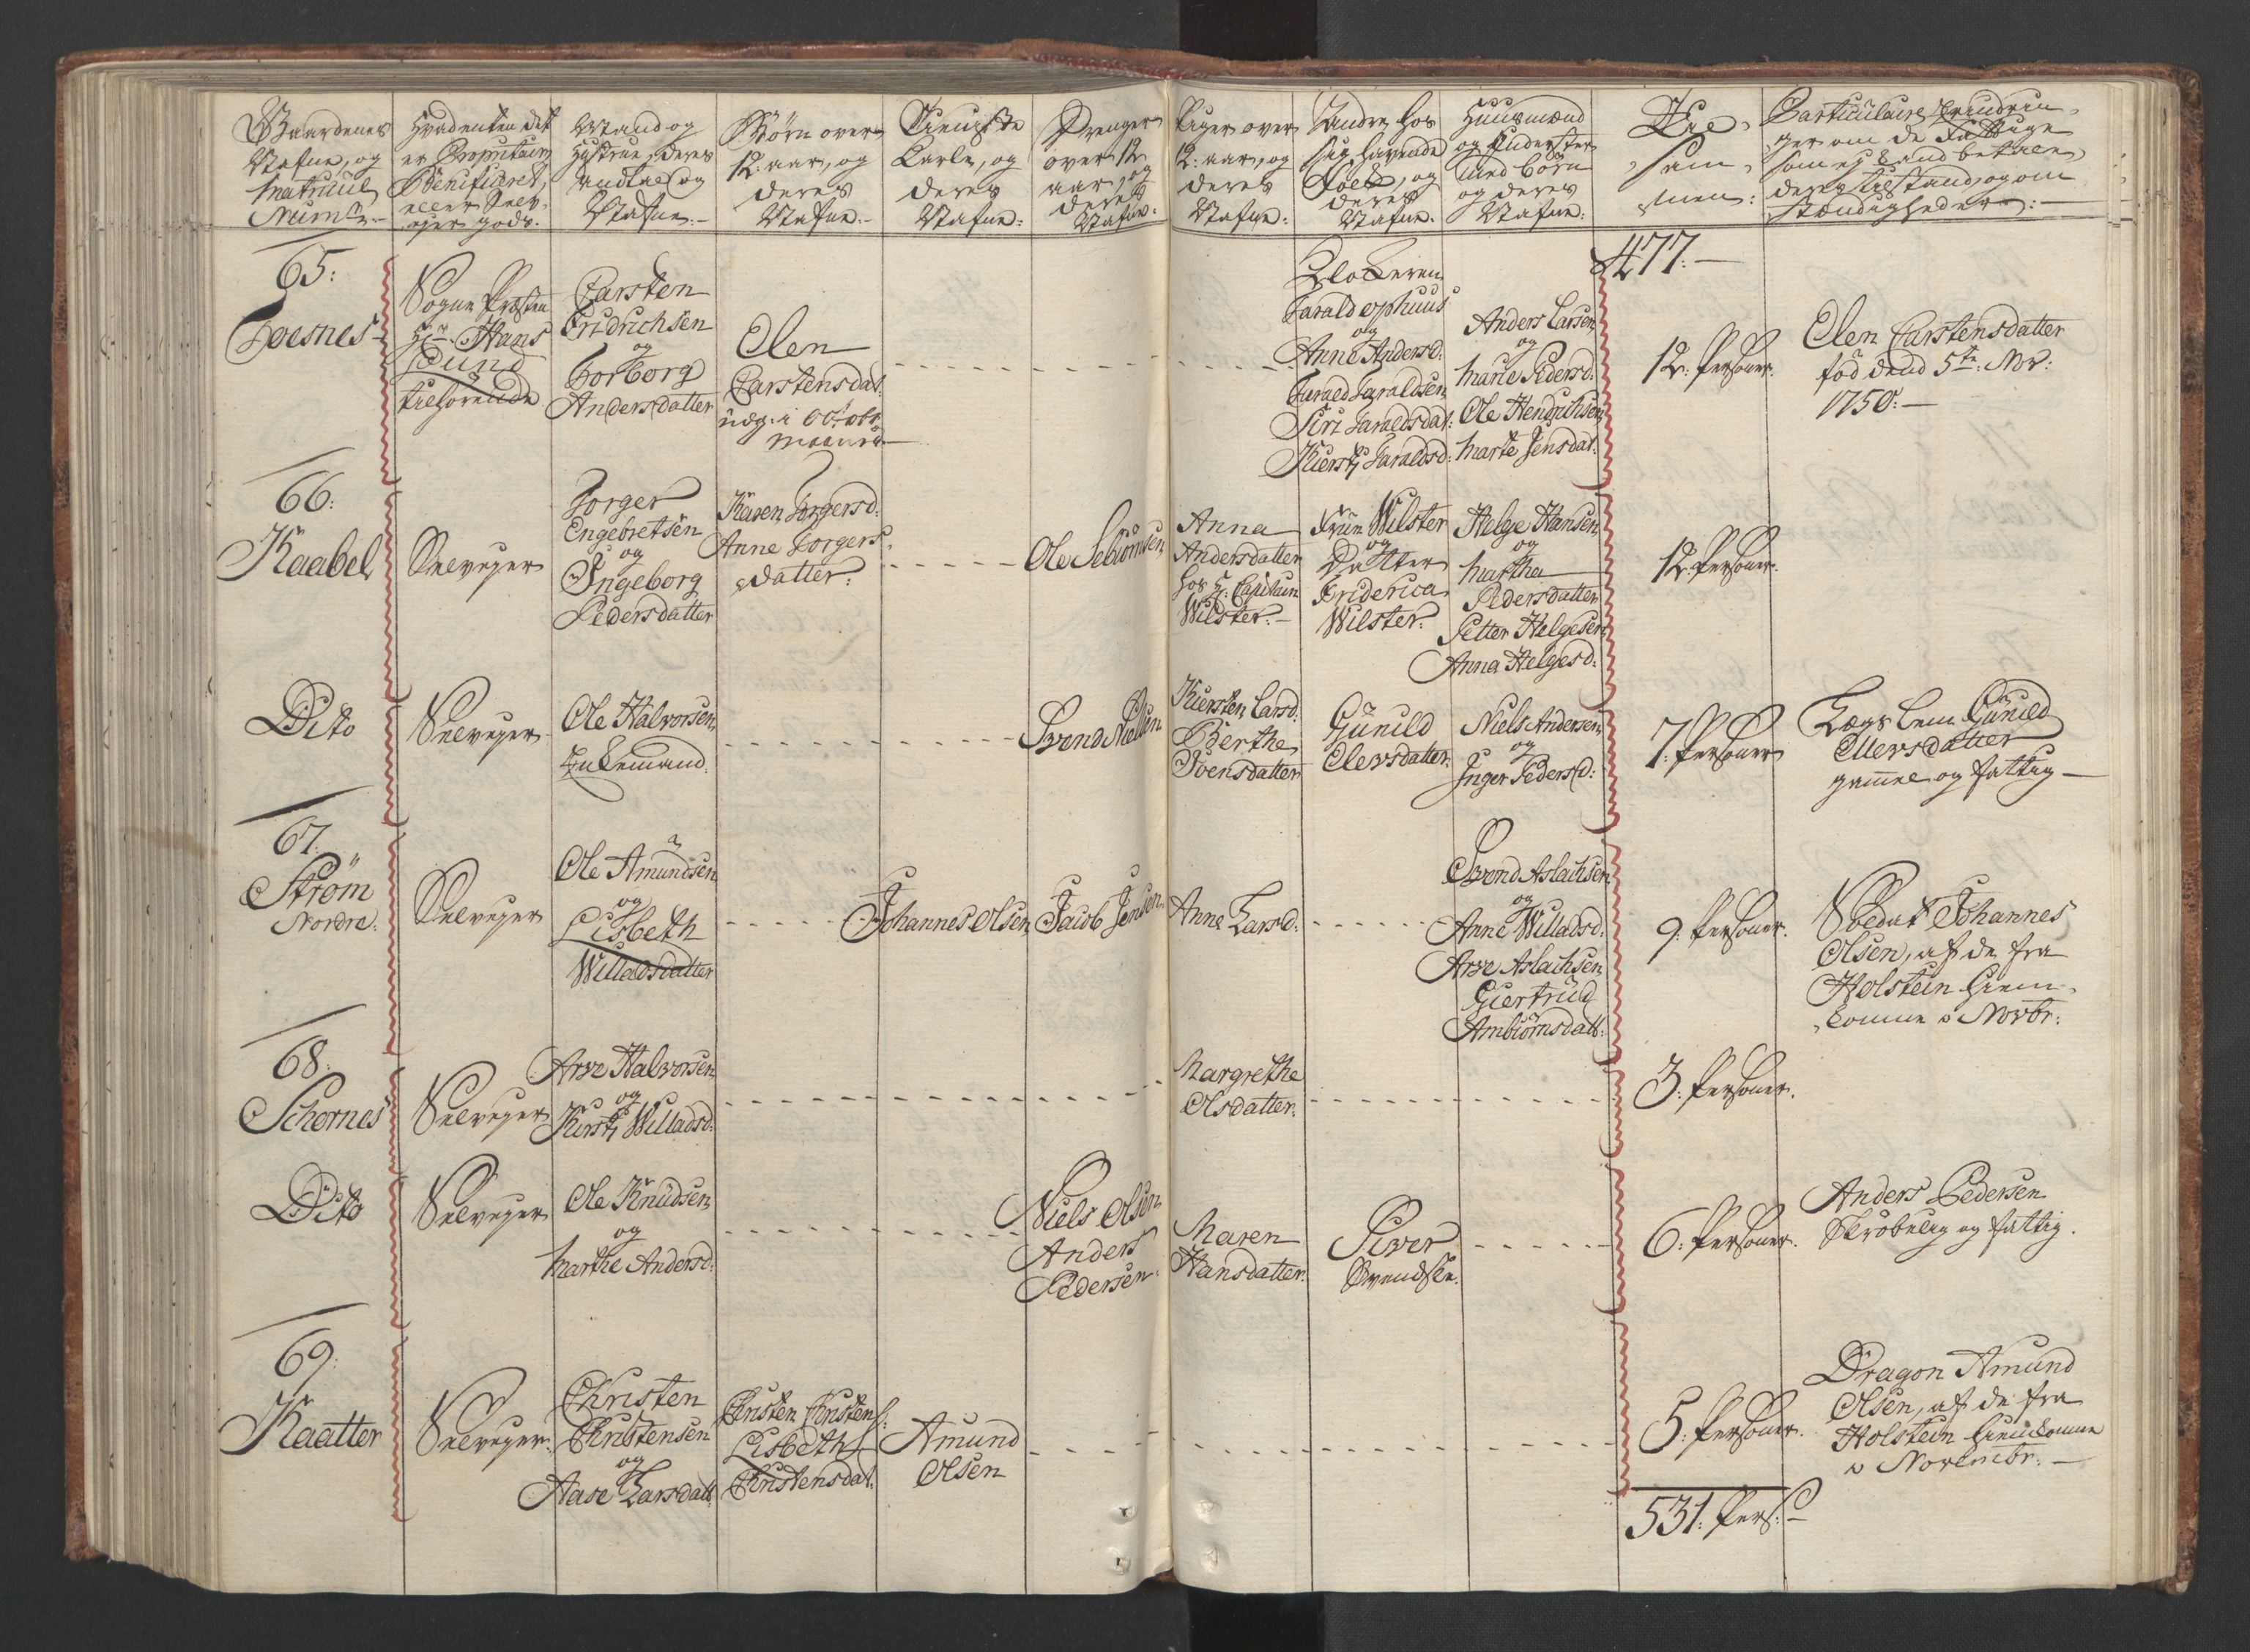 Gaardenes
Nafne, og
Matricul
Num:
Hvadenten det
er Proprietair
Benificeret,
eller Selv-
ejer gods.
Mand og
Hustrue, deres
Andtal og
Nafne.
Børn over
12: aar, og
deres
Nafne.
Tieniste
Karle, og
deres
Nafne:
Drenger
over 12
aar, og
deres
Nafne:
Piger over
12: aar, og
deres
Nafne:
Andre hos
sig havende
Folk, og
deres
Nafne:
Huusmænd
og Inderster
med børn
og deres
Nafne:
Til-
sam-
men:
Particulaire Erindrin-
ger om de Fattige
som ej kand betale,
deres tilstand, og om-
stændigheder:
477:
65:
Foesnes
Sogne Præsten
Hr: Hans
Lund
tilhørende
Carsten
Fridrichsen
og
Torborg
Andersdatter
Elen
Carstensdat:
udg: i Octobr:
Maaned
Klokeren
Haralderphuus
og
Anne Andersd:
Harald Haraldsen
Siri Haraldsdat:
Kiersti Haraldsd:
Anders Larsen
og
Marie Pedersd:
Ole Hendrichsen
Marte Jensdat:
12: Personer:
Elen Carstensdatter
fød dend 5te: Nov:
1750:
66:
Kaabel
Selvejer
Torger
Engebretsen
og
Ingeborg
Pedersdatter
Karen Torgersd:
Anne Torgers-
datter:
Ole Sebiørnsen
Anna
Andersdatter
hos H: Capitain
Wilster.
Frue Wilster
og
Datter
Friderica
Wilster:
Helge Hansen
og
Martha
Pedersdatter
Petter Helgesen
Anna Helgesd:
12 Personer.
Dito
Selvejer
Ole Halvorsen
Enkemand:
Svend Nielsen
Kiersten Larsd:
Berthe
Svensdatter
Gunild
Elevsdatter
Niels Andersen
og
Inger Pedersd:
7: Personer
Lægs lem Gunild
Ellevsdatter
gammel og fattig
67:
Strøm
Nordre:
Selvejer
Ole Amundsen
og
Lisbeth
Willadsdatter
Johannes Olsen
Jacob Jensen
Anne Larsd:
Svend Aslachsen
og
Anne Willadsd:
Arve Aslachsen
Giertrud
Ambiørnsdatt:
9: Personer.
Soldat Johannes
Olsen, af de fra
Holstein hiem-
komne i Novbr:
68:
Schornes
Selvejer
Arve Halvorsen
og
Kirsti Willadsd:
Margrethe
Olsdatter:
3: Personer.
Dito
Selvejer
Ole Knudsen
og
Marthe Andersd:
Niels Olsen
Anders
Pedersen
Maren
Hansdatter
Siver
Svendsen.
6: Personer.
Anders Pedersen
Skrøbelig og fattig.
69:
Kaatter
Selvejer
Christen
Christensen
og
Aase Larsdatt:
Christen Christens:
Lisbeth
Christensdat:
Amund
Olsen
5: Personer.
Dragon Amund
Olsen, af de fra
Holstein hiemkomne
i Novembr:
531: Pers: